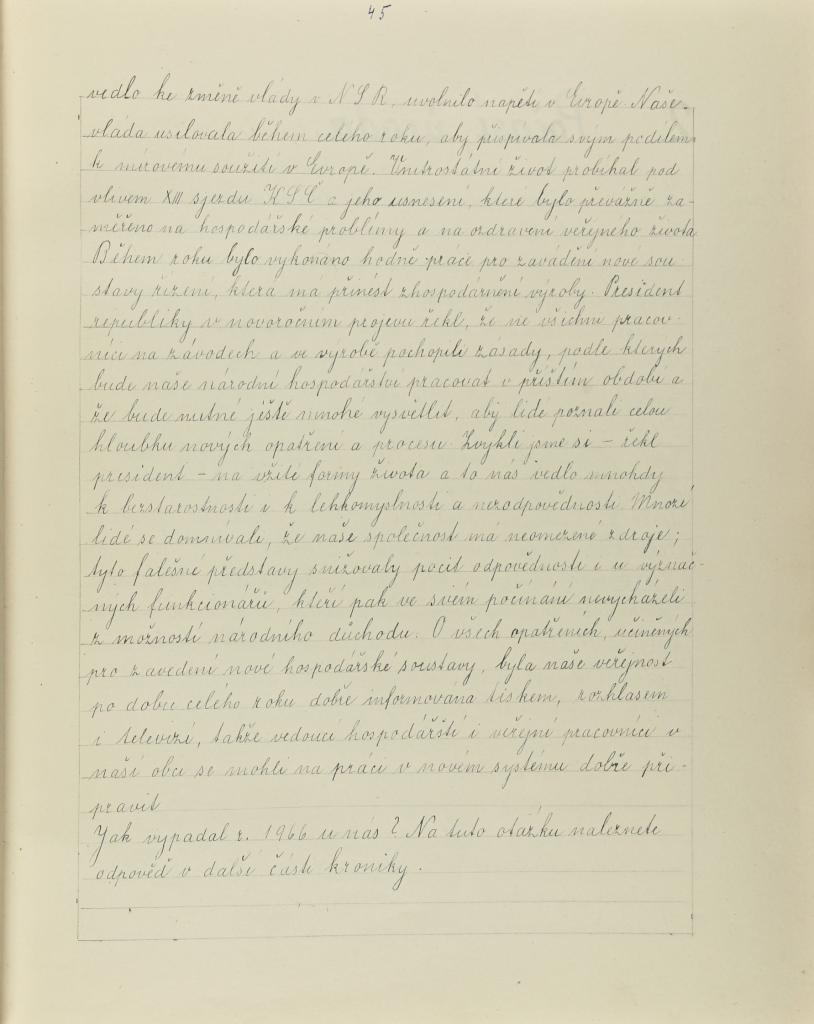 45
vedlo ke změně vlády v NSR, uvolnilo napětí v Evropě. Naše
vláda usilovala během celého roku, aby přispívala svým podílem
k mírovému soužití v Evropě. Vnitrostátní život probíhal pod
vlivem XIII sjezdu KSČ a jeho usnesení, které bylo převážně za-
měřeno na hospodářské problémy a na ozdravení veřejného života
Během roku bylo vykonáno hodně práce pro zavádění nové sou-
stavy řízení, která má přinést zhospodárnění výroby. President
republiky v novoročním projevu řekl, že ne všichni pracov-
níci na závodech a ve výrobě pochopili zásady, podle kterých
bude naše národní hospodářství pracovat v příštím období a
že bude nutné ještě mnohé vysvětlit, aby lidé poznali celou
hloubku nových opatření a procesu. Zvykli jsme si – řekl
president – na vžité formy života a to nás vedlo mnohdy
k bezstarostnosti i k lehkomyslnosti a nezodpovědnosti. Mnozí
lidé se domnívali, že naše společnost má neomezené zdroje;
tyto falešné představy snižovaly pocit odpovědnosti i u význač-
ných funkcionářů, kteří pak ve svém počínání nevycházeli
z možností národního důchodu. O všech opatřeních, učiněných
pro zavedení nové hospodářské soustavy, byla naše veřejnost
po dobu celého roku dobře informována tiskem, rozhlasem
i televizí, takže vedoucí hospodářští i veřejní pracovníci v
naší obci se mohli na práci v novém systému dobře při-
pravit
Jak vypadal r. 1966 u nás? Na tuto otázku naleznete
odpověď v další části kroniky.